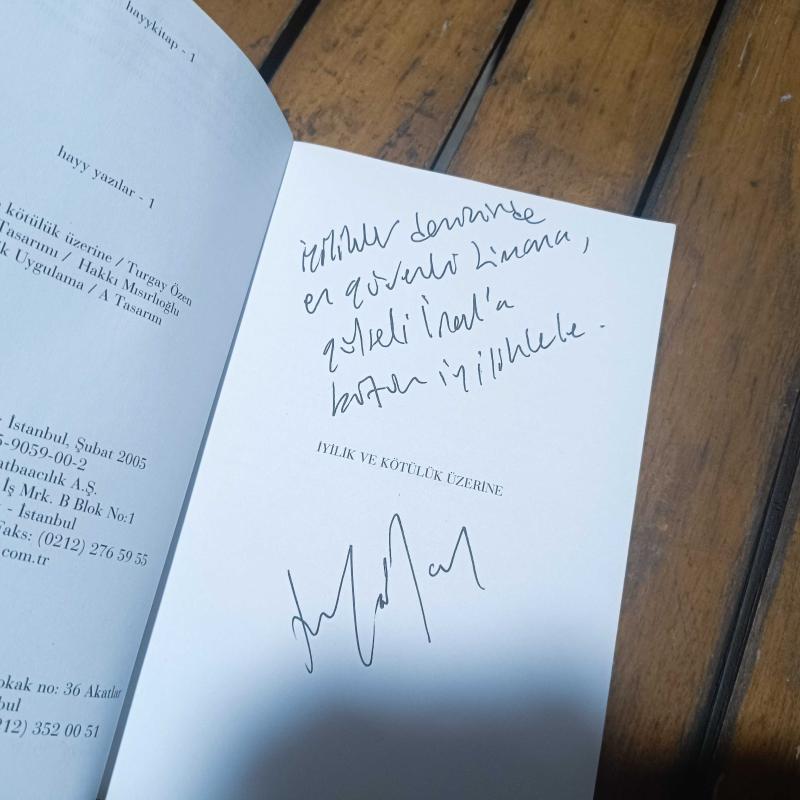 hayykitap - 1
hayy yazılar - 1
kötülük üzerine / Turgay Özen
Tasarımı / Hakkı Mısırlıoğlu
Uygulama / A Tasarım
- İstanbul, Şubat 2005
5-9059-00-2
atbaacılık A.Ş.
İş Mrk. B Blok No:1
- İstanbul
Faks: (0212) 276 59 55
com.tr
okak no: 36 Akatlar
bul
212) 352 00 51
iyilikler denizinde
en güvenli limana,
bütün iyiliklerle.
İYİLİK VE KÖTÜLÜK ÜZERİNE